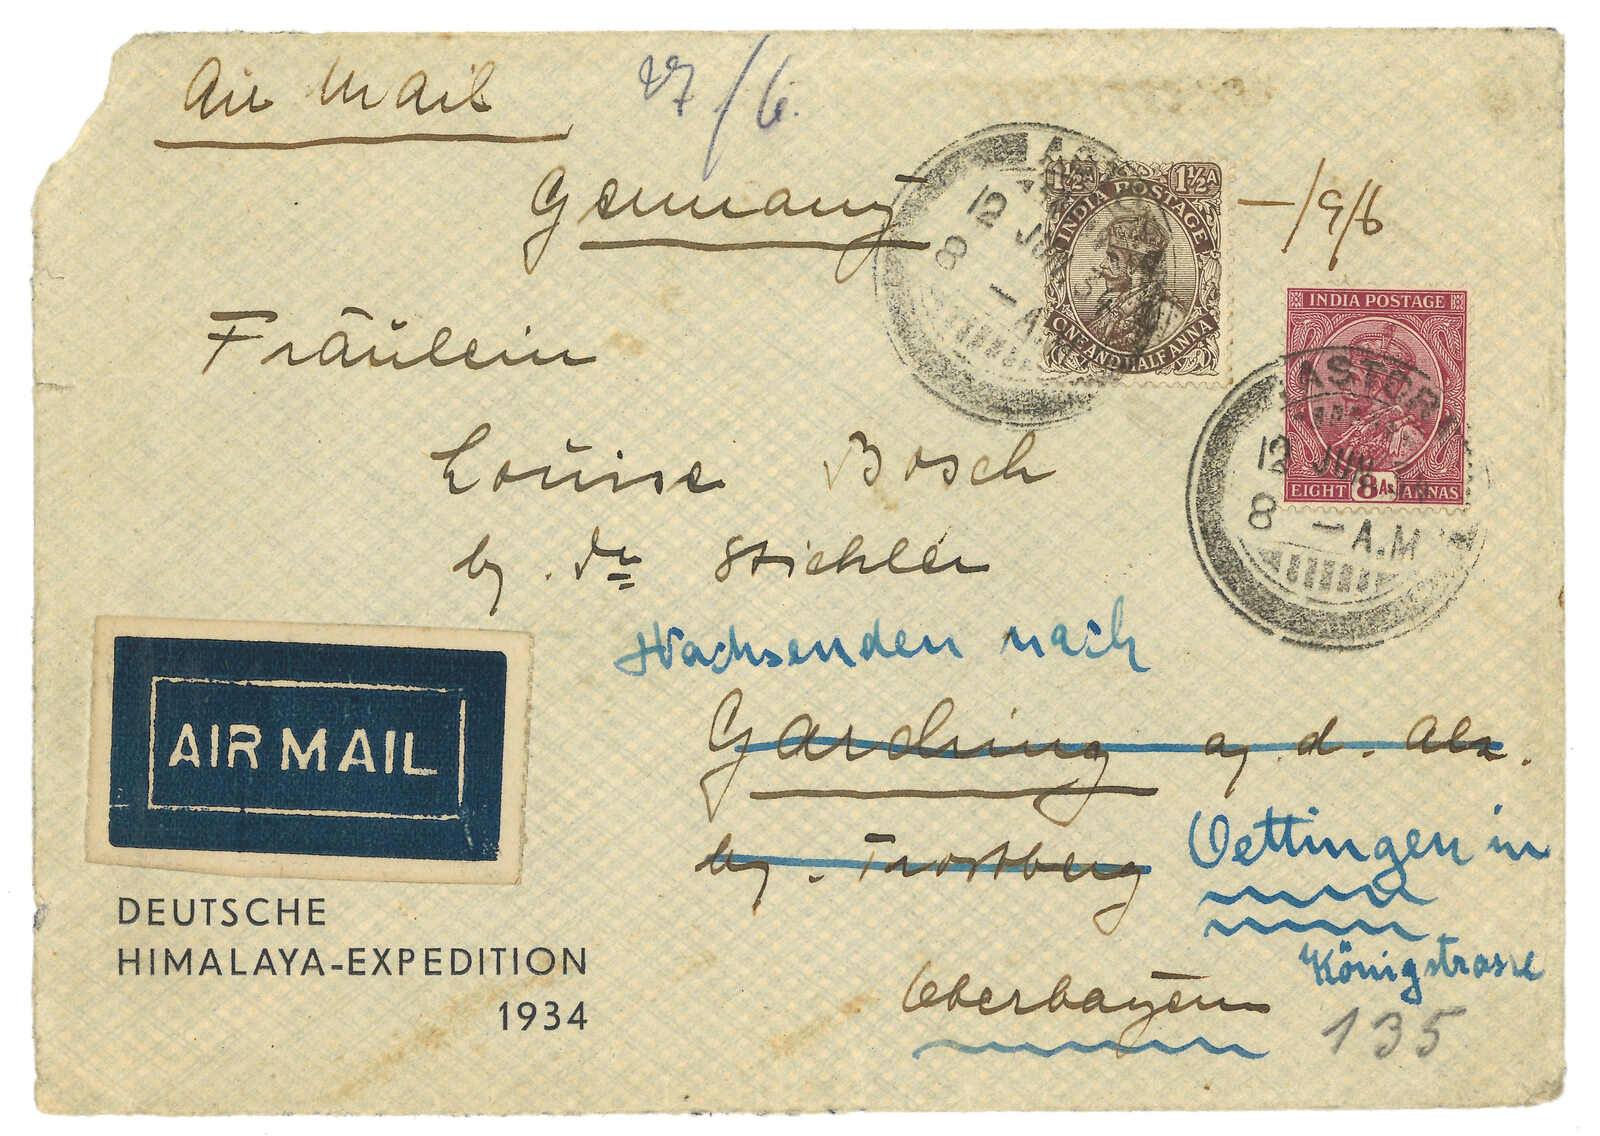 Air Mail
27/6.
Germany
-/9/6
Fräulein
Louise Bosch
bz. Dr Stichler
Nachsenden nach
Garching a. d. Alz.
bz. Trostberg
Oettingen in
Königstrasse
Oberbayern
135
1½A 1½A
INDIA POSTAGE
ONE AND HALF ANNA
12 JUN
8 - A.
INDIA POSTAGE
EIGHT 8As ANNAS
ASTOR
12 JUN
8 - A.M
AIR MAIL
DEUTSCHE
HIMALAYA-EXPEDITION
1934